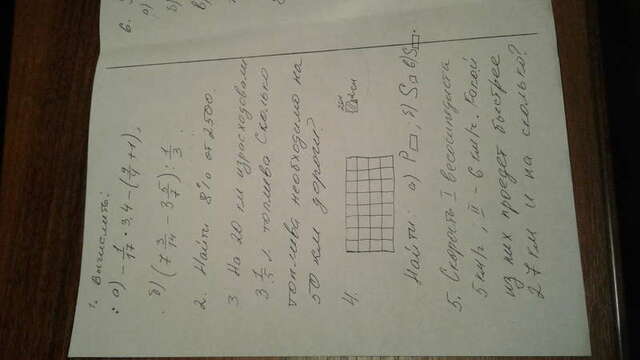 1. Вычислить:
а) - 1/17 · 3,4 - (9/4 + 1),
б) (7 3/14 - 3 5/7) : 1/3.
2. Найти 8% от 2500.
3. На 20 км израсходовали
3 1/5 л. топлива Сколько
топлива необходимо на
50 км дороги?
4.
2см
2см
Найти: а) P▭, б) S▫ в) S▭.
5. Скорость I велосипедиста
5 км/ч, II - 6 км/ч. Какой
из них проедет быстрее
27 км и на сколько?
6.
а)
б)
в)